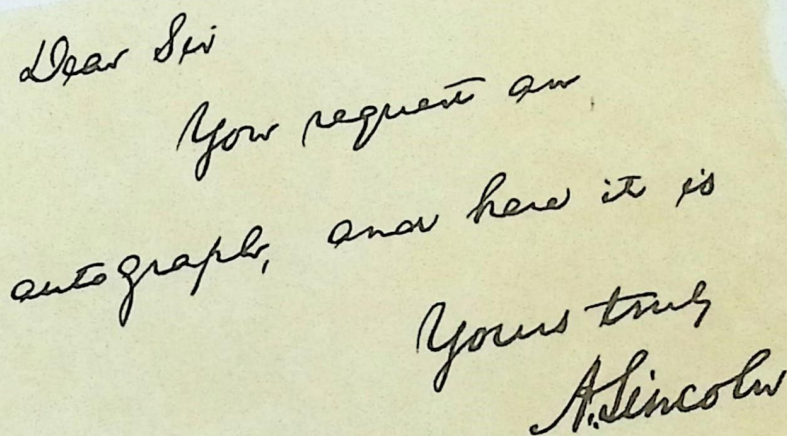 Dear Sir
You request an
autograph, and here it is
Yours truly
A. Lincoln